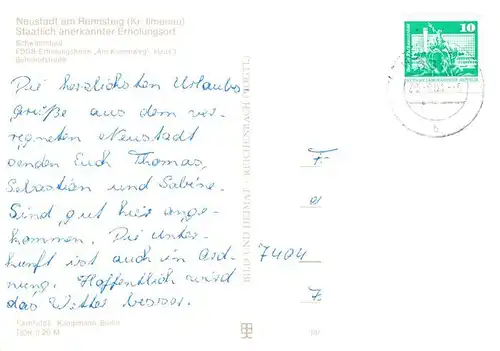 Neustadt am Rennsteig (Kr. Ilmenau)
Staatlich anerkannter Erholungsort
Schwimmbad
FDGB-Erholungsheim „Am Kummweg", Haus 1
Bahnhofstraße
Die herzlichsten Urlaubs
grüße aus dem ver-
regneten Neustadt
senden Euch Thomas,
Sebastian und Sabine.
Sind gut hier ange-
kommen. Die Unter-
kunft ist auch in Ord-
nung. Hoffentlich wird
das Wetter besser.
BILD UND HEIMAT REICHENBACH (VOGTL)
10
F
e
7404
F
Farbfotos: Kampmann, Berlin